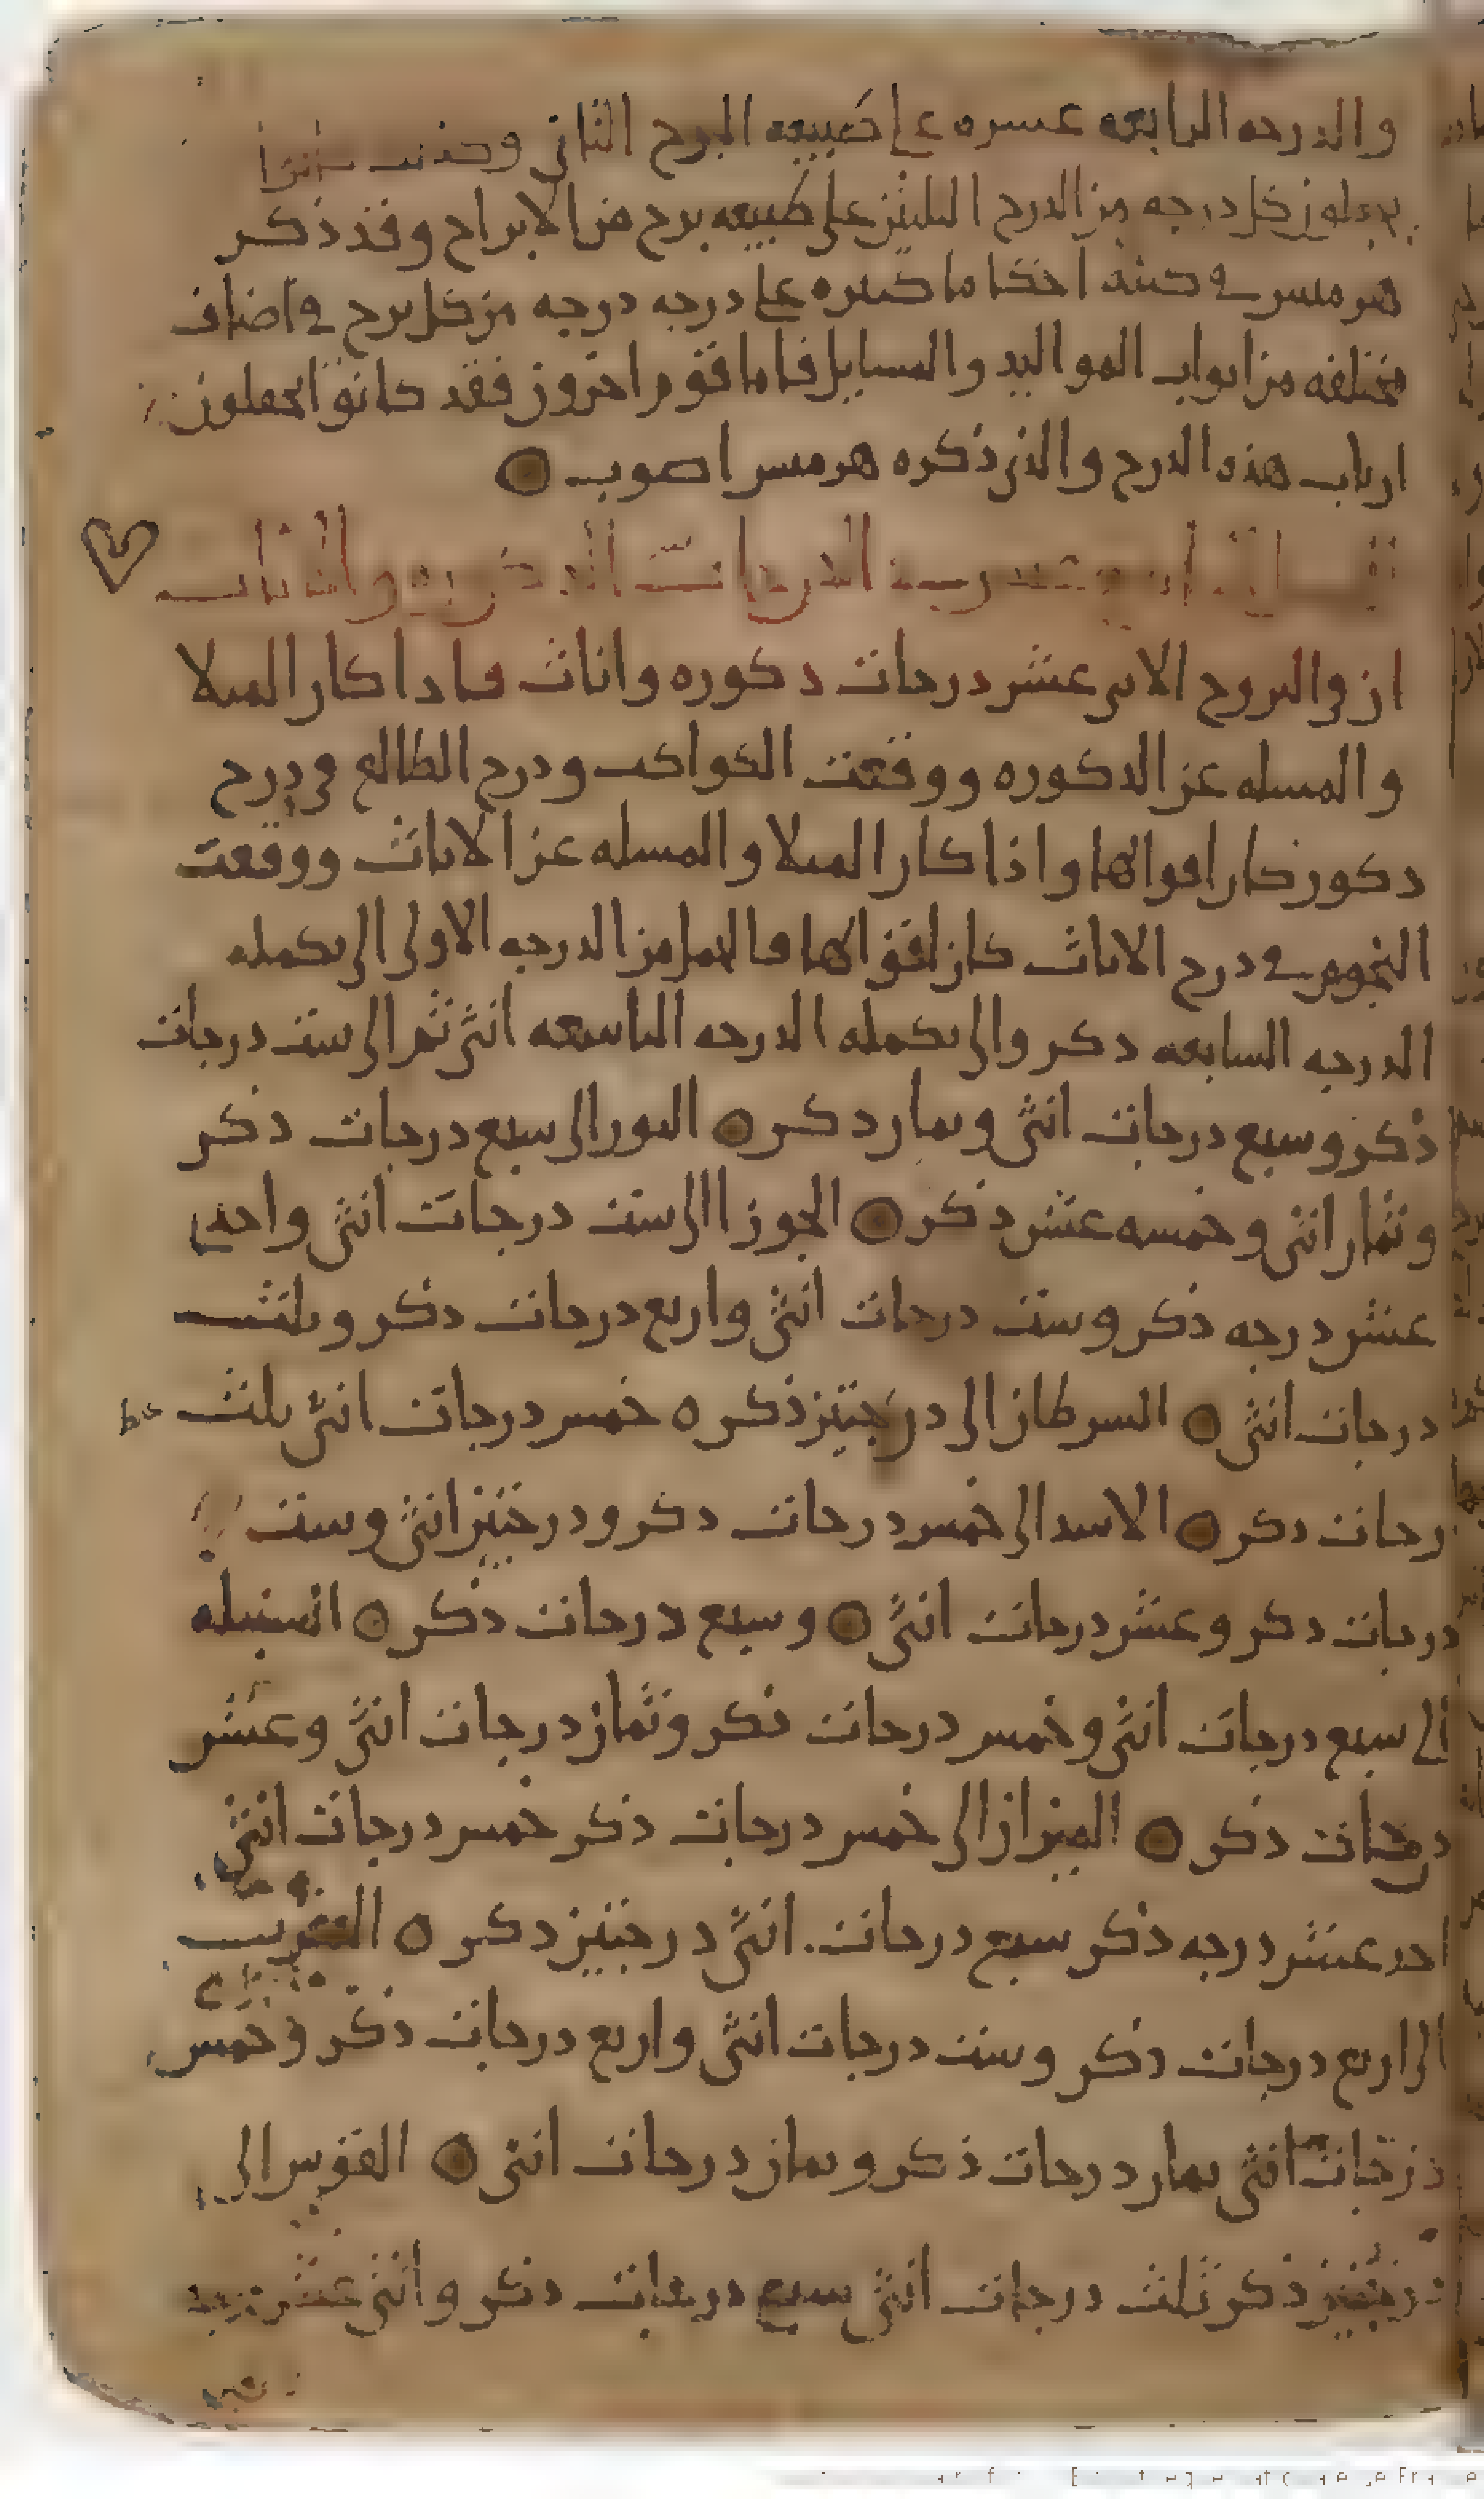 والدرجه الرابعه عسره على طبيعه البرج الثاني وكذلك كانوا
يجعلون كل درجه من الدرج الثلثين على طبيعه برج من الابراج وقد ذكر
هرمس في كتبه احكاما كثيره على درجه درجه من كل برج في اصناف
مختلفه من ابواب المواليد والمسايل فاما قوم اخرون فقد كانوا يجعلون
ارباب هذه الدرج والذي ذكره هرمس اصوب
الدرجات الذكوره والاناث
ان في البروج الاثني عشر درجات ذكوره واناث فاذا كان الميلاد
والمسله عن الذكوره ووقعت الكواكب ودرج الطالع في درج
ذكور كان اقوا لها واذا كان الميلاد والمسله عن الاناث ووقعت
النجوم في درج الاناث كان اقوا لها فالحمل من الدرجه الاولى الى تكمله
الدرجه السابعه ذكر والى تكمله الدرجه التاسعه انثى ثم الى ست درجات
ذكر وسبع درجات انثى وثمان ذكر الثور الى سبع درجات ذكر
وثمان انثى وخمسه عشر ذكر الجوزا الى ست درجات انثى واحدى
عشر درجه ذكر وست درجات انثى واربع درجات ذكر وثلث
درجات انثى السرطان الى درجتين ذكر خمس درجات انثى ثلث
درجات ذكر الاسد الى خمس درجات ذكر ودرجتين انثى وست
درجات ذكر وعشر درجات انثى وسبع درجات ذكر السنبله
الى سبع درجات انثى وخمس درجات ذكر وثمان درجات انثى وعشر
درجات ذكر الميزان الى خمس درجات ذكر خمس درجات انثى
احد عشر درجه ذكر سبع درجات انثى درجتين ذكر العقرب
الى اربع درجات ذكر وست درجات انثى واربع درجات ذكر وخمس
درجات انثى ثمان درجات ذكر وثمان درجات انثى القوس الى
درجتين ذكر ثلث درجات انثى سبع درجات ذكر واثنى عشر